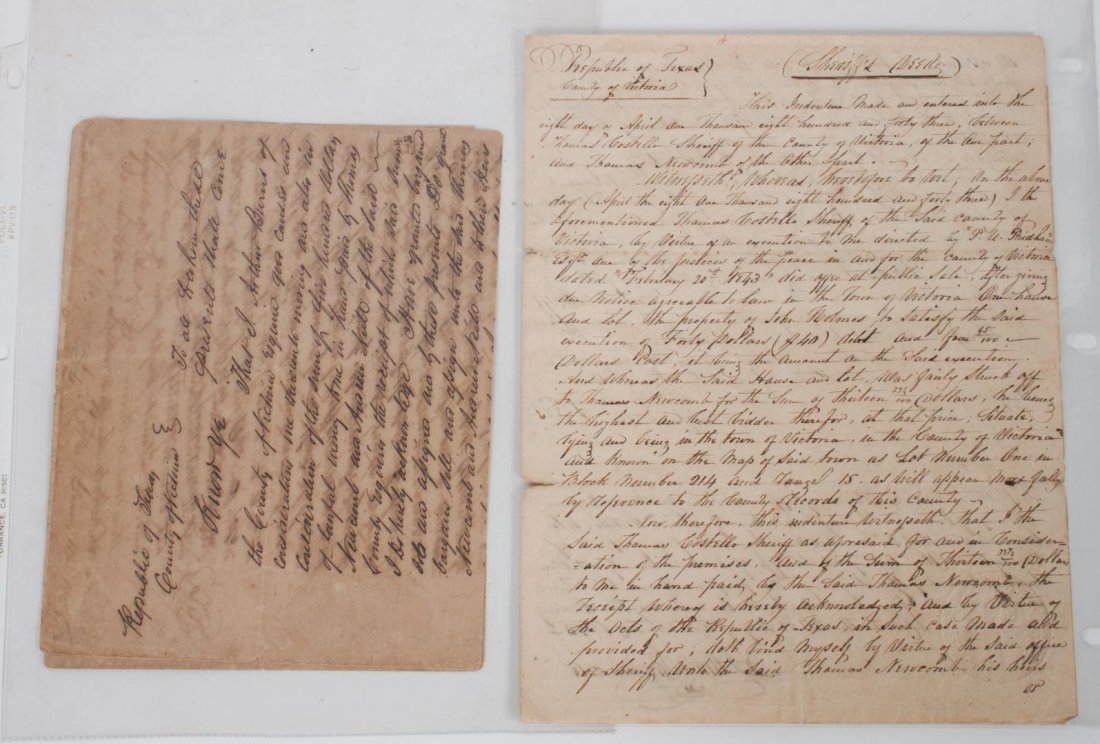 Republic of Texas
County of Victoria
(Sheriff's Deed)
This Indenture Made and entered into the
eight day of April One Thousand eight hundred and forty three, between
Thomas Costello Sheriff of the County of Victoria, of the One part;
and Thomas Newcomb of the Other part.
Witnesseth, Whereas, heretofore to wit, on the above
day (April the eight One Thousand eight hundred and forty three) I the
aforementioned Thomas Costello Sheriff of the Said County of
Victoria, by Virtue of an execution to me directed by P. W.
Esqr. One of the justices of the Peace in and for the County of Victoria
dated "February 20st 1843" did at public Sale, after giving
due Notice agreeable to law in the Town of Victoria One house
and lot, the property of John Holmes, to satisfy the said
execution of Forty Dollars ($40) debt and four /100
Dollars Cost it being the amount on the Said execution.
And whereas the Said House and lot, Was fairly Struck off
to Thomas Newcomb for the Sum of thirteen /100 Dollars, he being
the highest and best bidder therefor, at that price, Situate,
lying and being in the town of Victoria, in the County of Victoria
and known on the Map of Said town as Lot Number One in
Block Number 214 and Range 15. as Will appear more fully
by Reference to the County Records of this County.
Now, therefore, this indenture Witnesseth that I the
Said Thomas Costello Sheriff as aforesaid for and in Consider-
-ation of the premises. And of the Sum of Thirteen /100 (Dollars
to Me in hand paid, by the Said Thomas Newcomb, the
receipt Whereof is hereby acknowledged, and by Virtue of
the Acts of the Republic of Texas, in such case Made and
provided for; doth bind Myself by Virtue of the Said office
of Sheriff Unto the Said Thomas Newcomb his heirs
or
Republic of Texas
County of
To all to whom these
presents shall come
Know Ye That I Arthur Burns of
the County of and
consideration of the sum of five hundred Dollars
of lawful money to me in hand paid by Thomas
Newcomb and
County the receipt of which
I do hereby acknowledge Have granted
sold and and by these presents Do grant
bargain sell and assign unto the said Thomas
Newcomb and their heirs
TORRANCE, CA 90501